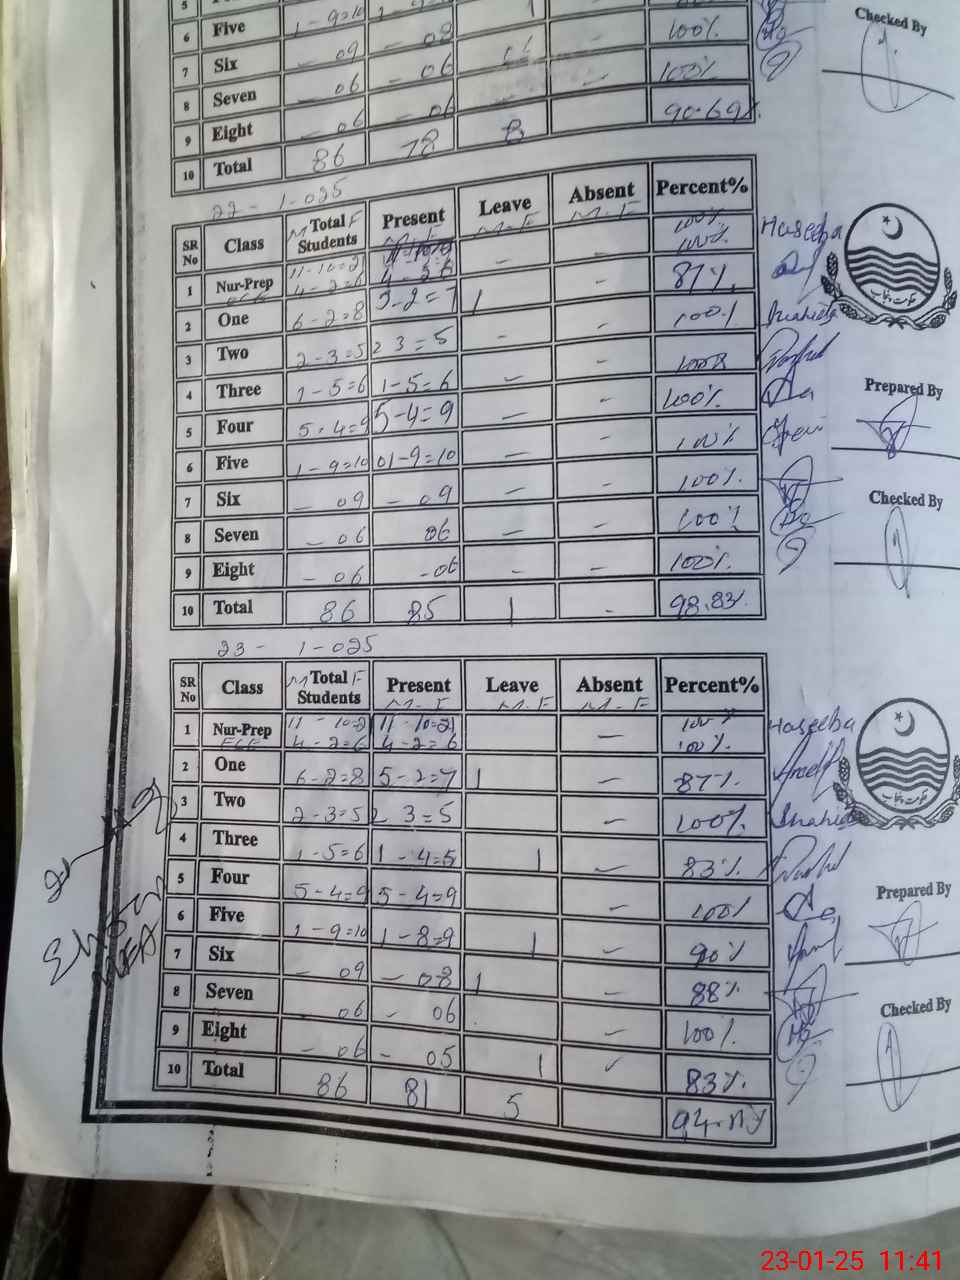 5
6 Five 1-9=10
7 Six - 09 - 09 - 100%
8 Seven - 06 - 06 100%
9 Eight - 06 - 06
10 Total 86 78 8 90.69%
Checked By
22 - 1-025
SR No Class M Total F Students Present M-F Leave M-F Absent M-F Percent%
1 Nur-Prep 11-10=21 - 100%
ECE 4-2=6 4-2=6 100%
2 One 6-2=8 5-2=7 1 - 87%
3 Two 2-3=5 2 3=5 - - 100%
4 Three 1-5=6 1-5=6 - - 100%
5 Four 5-4=9 5-4=9 - - 100%
6 Five 1-9=10 01-9=10 - - 100%
7 Six - 09 - 09 - - 100%
8 Seven - 06 06 - - 100%
9 Eight - 06 -06 - - 100%
10 Total 86 85 1 - 98.83%
Haseeba
حکومت پنجاب
Prepared By
Checked By
23 - 1-025
SR No Class M Total F Students Present M-F Leave M-F Absent M-F Percent%
1 Nur-Prep 11-10=21 11-10=21 - 100%
ECE 4-2=6 4-2=6 100%
2 One 6-2=8 5-2=7 1 - 87%
3 Two 2-3=5 2 3=5 100%
4 Three 1-5=6 1-4=5 1 - 83%
5 Four 5-4=9 5-4=9 - 100%
6 Five 1-9=10 1-8=9 1 - 90%
7 Six - 09 - 08 1 - 88%
8 Seven - 06 - 06 - 100%
9 Eight - 06 - 05 1 83%
10 Total 86 81 5
Haseeba
حکومت پنجاب
Prepared By
Checked By
23-01-25 11:41